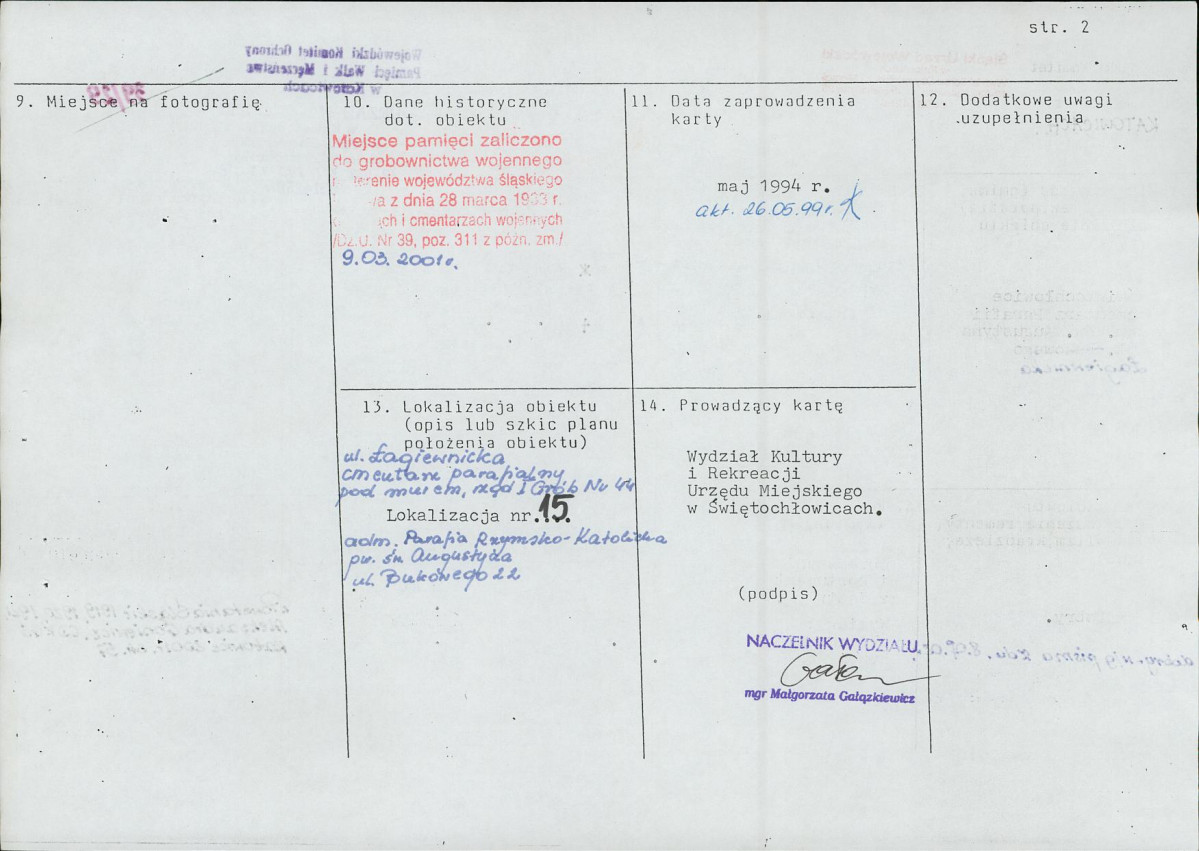 str. 2
9. Miejsce na fotografię
10. Dane historyczne
dot. obiektu
Miejsce pamięci zaliczono
do grobownictwa wojennego
terenie województwa śląskiego
z dnia 28 marca 1933 r.
i cmentarzach wojennych
/Dz.U. Nr 39, poz. 311 z późn. zm./
9.03. 2001r.
11. Data zaprowadzenia
karty
maj 1994 r.
akt. 26.05.99r.
12. Dodatkowe uwagi
.uzupełnienia
13. Lokalizacja obiektu
(opis lub szkic planu
położenia obiektu)
ul. Łagiewnicka
cmentarz parafialny
pod murem, rząd I Grób Nr 44
Lokalizacja nr.15.
adm. Parafia Rzymsko-Katolicka
pw. św Augustyna
ul. Bukowego 22
14. Prowadzący kartę
Wydział Kultury
i Rekreacji
Urzędu Miejskiego
w Świętochłowicach.
(podpis)
NACZELNIK WYDZIAŁU
mgr Małgorzata Gałązkiewicz